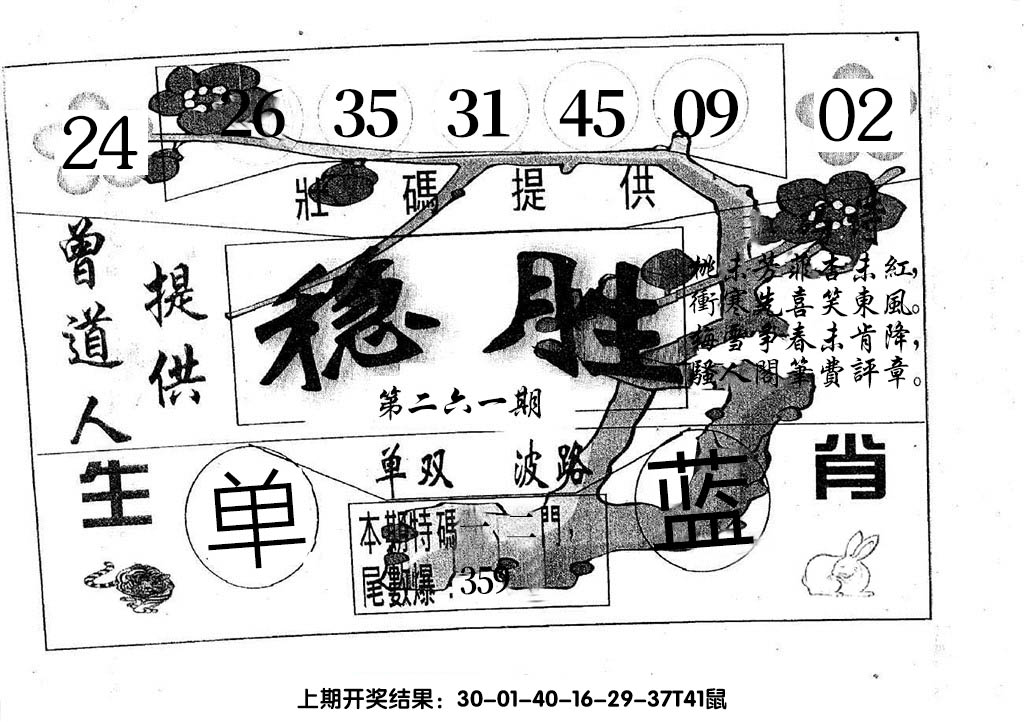 24 26 35 31 45 09 02
壯碼提供
特
曾道人
提供
稳胜
第二六一期
桃未芳菲杏未紅，
衝寒先喜笑東風。
梅雪爭春未肯降，
騷人閣筆費評章。
单双 波路
生肖
单
蓝
本期特碼一、二門，
尾數爆：359
上期开奖结果：30-01-40-16-29-37T41鼠